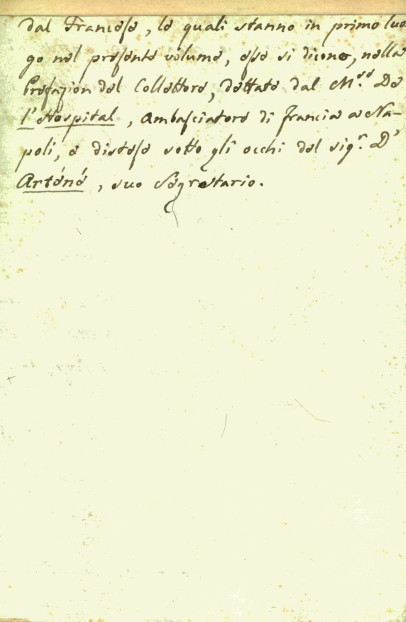 dal Francese, le quali stanno in primo luo
go nel presente volume, esse si dicono, nella
Prefazion del Collettore, dettate dal M.se De
l'Hospital, Ambasciatore di Francia a Na-
poli, e distese sotto gli occhi del sig.r D'
Arténé, suo Segretario.